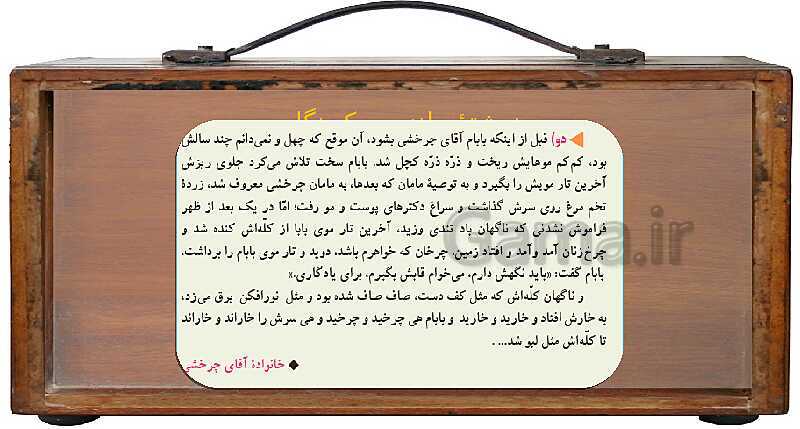 دو) قبل از اینکه بابام آقای چرخشی بشود، آن موقع که چهل و نمی‌دانم چند سالش
بود، کم‌کم موهایش ریخت و ذرّه ذرّه کچل شد. بابام سخت تلاش می‌کرد جلوی ریزش
آخرین تار مویش را بگیرد و به توصیۀ مامان که بعدها، به مامان چرخشی معروف شد، زردۀ
تخم مرغ روی سرش گذاشت و سراغ دکترهای پوست و مو رفت؛ امّا در یک بعد از ظهر
فراموش نشدنی که ناگهان باد تندی وزید، آخرین تار موی بابا از کلّه‌اش کنده شد و
چرخ‌زنان آمد وآمد و افتاد زمین. چرخان که خواهرم باشد، دوید و تار موی بابام را برداشت.
بابام گفت: «باید نگهش دارم، می‌خوام قابش بگیرم، برای یادگاری.»
و ناگهان کلّه‌اش که مثل کف دست، صاف صاف شده بود و مثل نورافکن برق می‌زد،
به خارش افتاد و خارید و خارید و بابام هی چرخید و چرخید و هی سرش را خاراند و خاراند
تا کلّه‌اش مثل لبو شد... .
خانوادۀ آقای چرخشی
Gama.ir